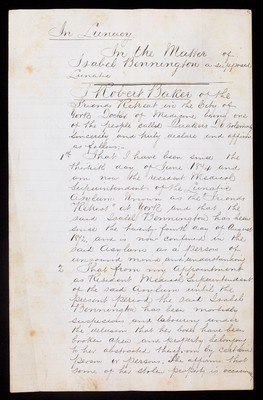 In Lunacy
In the Matter of
Isabel Bennington a supposed
Lunatic
I Robert Baker of the
Friends Retreat in the City of
York Doctor of Medicine being one
of the people called Quakers Do solemnly
sincerely and truly declare and affirm
as follows:-
1st That I have been since the
thirtieth day of June and
am now the resident Medical
Superintendent of the Lunatic
Asylum known as the "Friends
Retreat" at York and that the
said Isabel Bennington has been
since the twenty fourth day of August
and is now confined in the
said Asylum as a person of
unsound mind and understanding
2 That from my appointment
as Resident Medical Superintendent
of the said Asylum until the
present period the said Isabel
Bennington has been morbidly
suspicious and labouring under
the delusion that her boxes have been
broken open and property belonging
to her abstracted therefrom by certain
person or persons. She affirms that
some of the stolen property is